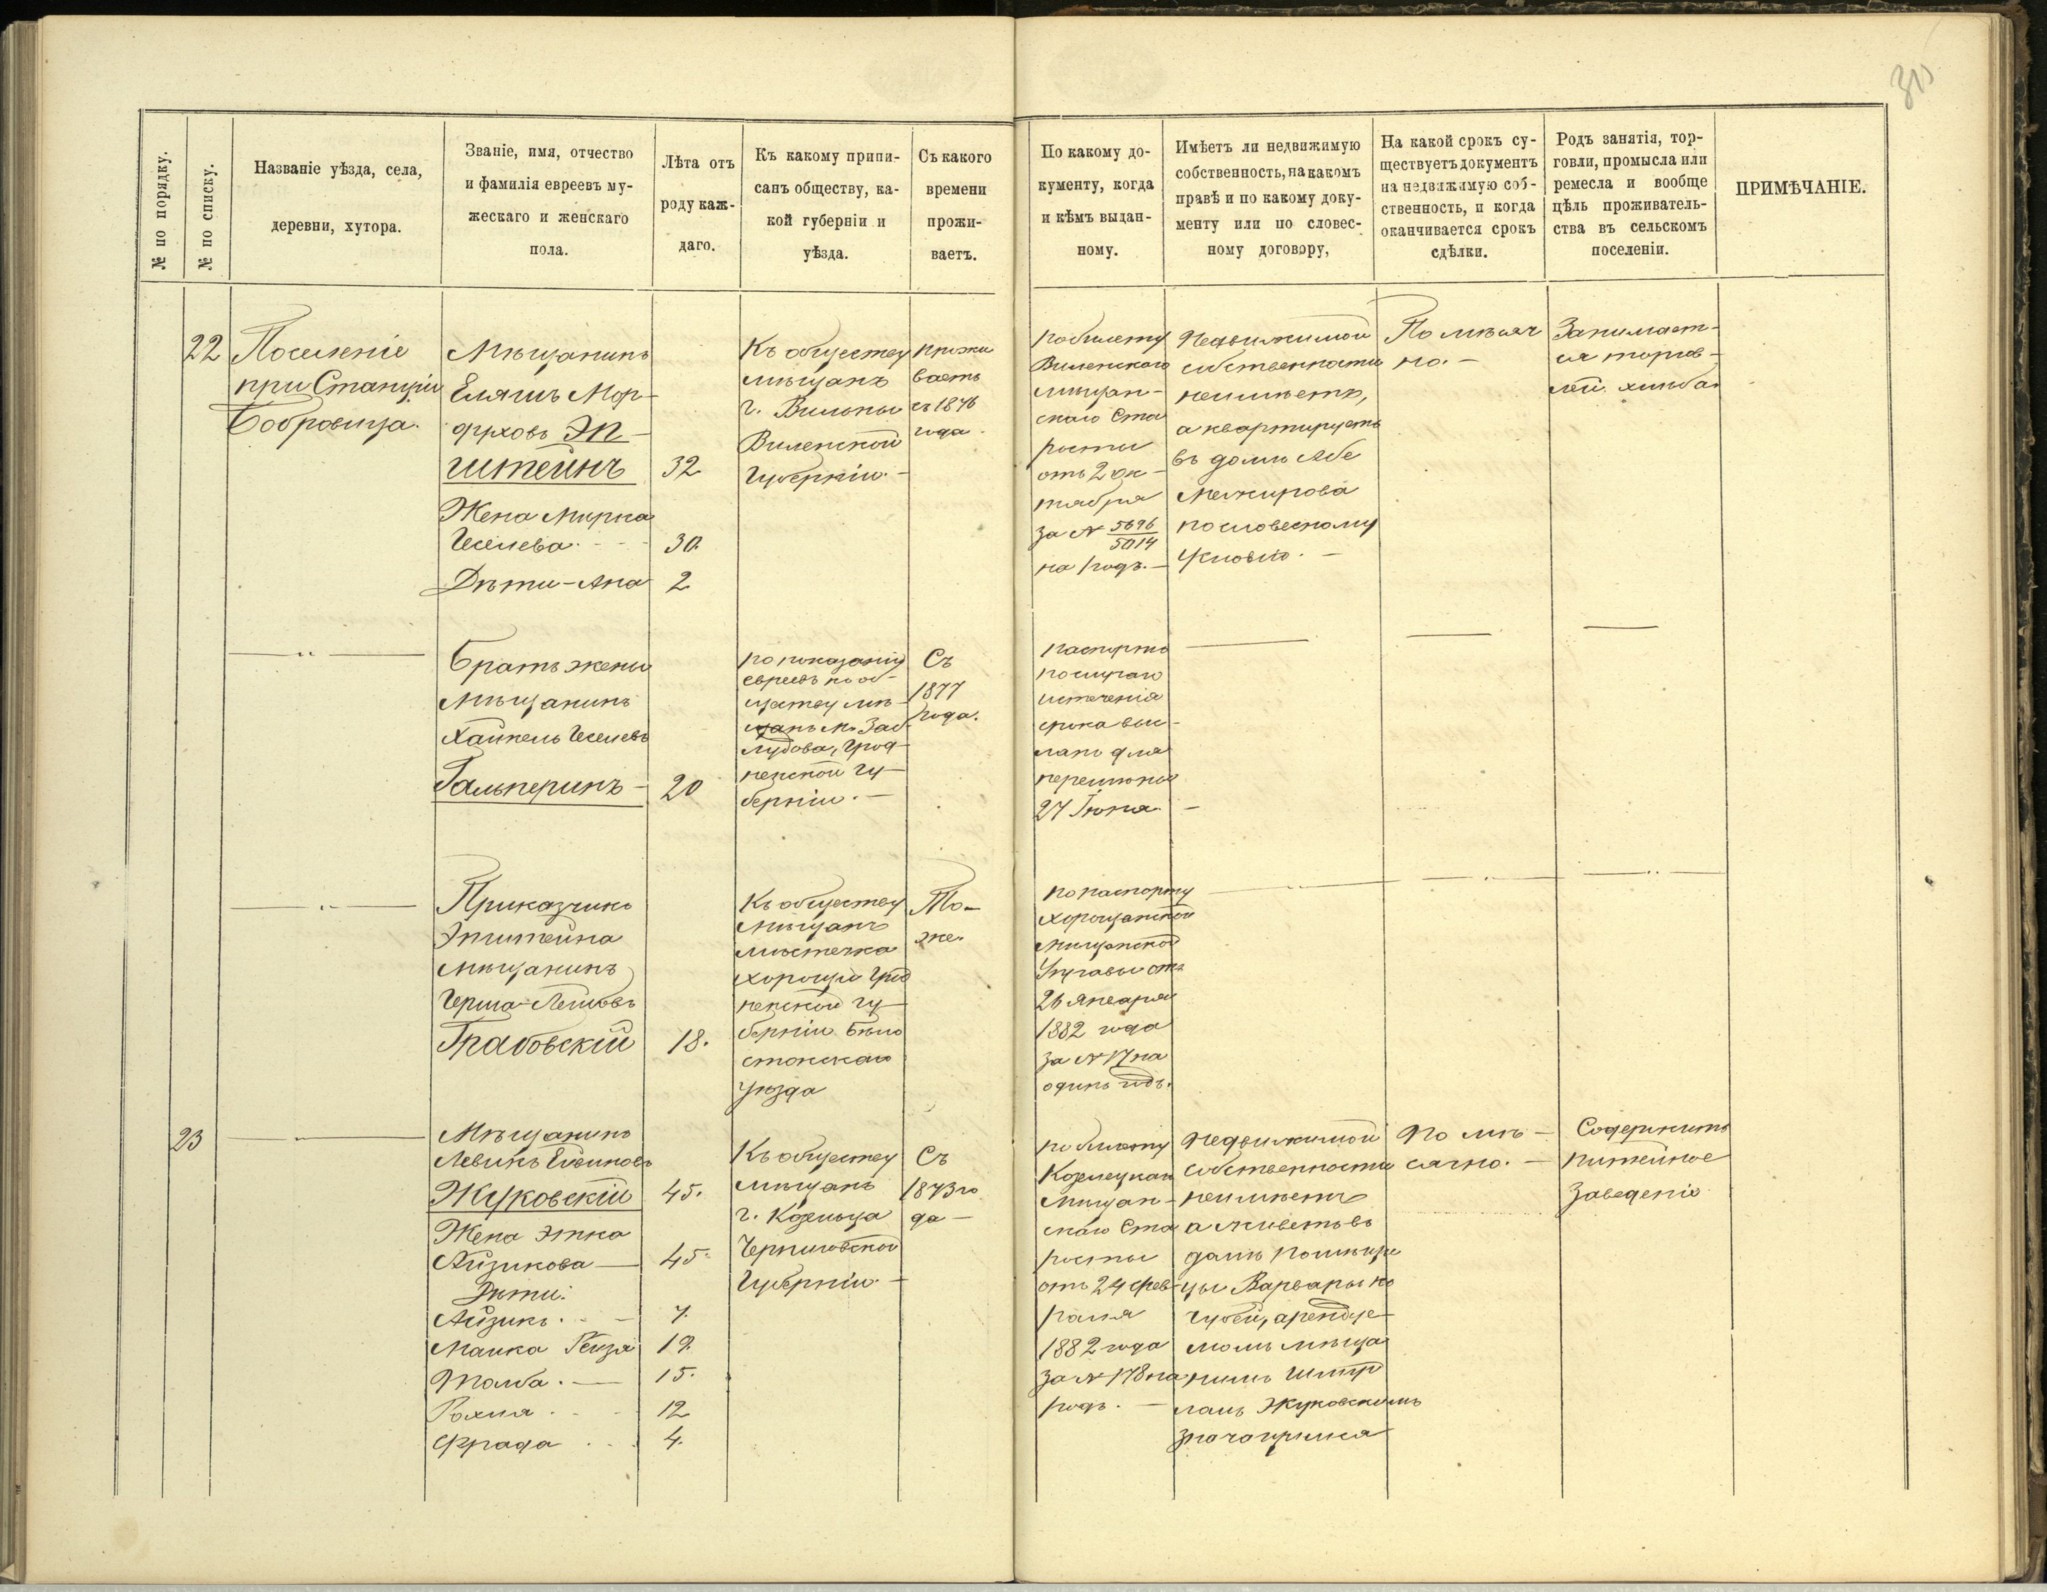 315
№ по порядку.
№ по списку.
Названіе уѣзда, села,
деревни, хутора.
Званіе, имя, отчество
и фамилія евреевъ му-
жескаго и женскаго
пола.
Лѣта отъ
роду каж-
даго.
Къ какому припи-
санъ обществу, ка-
кой губерніи и
уѣзда.
Съ какого
времени
прожи-
ваетъ.
По какому до-
кументу, когда
и кѣмъ выдан-
ному.
Имѣетъ ли недвижимую
собственность, на какомъ
правѣ и по какому доку-
менту или по словес-
ному договору,
На какой срокъ су-
ществуетъ документъ
на недвижимую соб-
ственность, и когда
оканчивается срокъ
сдѣлки.
Родъ занятія, тор-
говли, промысла или
ремесла и вообще
цѣль проживатель-
ства въ сельскомъ
поселеніи.
ПРИМѢЧАНІЕ.
22
Поселеніе
при Станціи
Бобровица.
Мѣщанинъ
Еляшъ Мор-
духовъ Эп-
штейнъ
32
Жена Мирка
Іеселева
30.
Дѣти - Ана
2
Къ обществу
мѣщанъ
г. Вильны
Виленской
Губерніи. -
прожи
ваетъ
съ 1876
года.
по билету
Виленскаго
мѣщан-
скаго Ста
росты
отъ 2 Ок-
тября
за № 5696/5014
на годъ. -
Недвижимой
собственности
неимѣетъ,
а квартируетъ
въ домѣ Абе
пословесному
условію. -
По мѣсяч
но. -
Занимает-
ся торгов-
лей хлѣба.
Братъ жены
Мѣщанинъ
Хаикель Іеселевъ
Гальперинъ -
20
по показанію
евреевъ къ об-
ществу мѣ-
щанъ м. Заб
лудова, Грод-
ненской гу-
берніи. -
Съ
1877
года.
паспортъ
истеченія
срока выс-
ланъ для
перемѣны
27 Іюня. -
Приказчикъ
Эпштейна
Мѣщанинъ
Герша-Лейбовъ
Грабовскій
18.
Къ обществу
мѣщанъ
мѣстечка
Хорощи Грод
ненской гу-
берніи Бѣло
стокскаго
уѣзда
То-
же.
по паспорту
Хорощанской
Мѣщанской
Управы отъ
26 Января
1882 года
за № 17 на
одинъ годъ.
23
Мѣщанинъ
Жуковскій
45.
Жена Этка
Айзикова
45.
Дѣти:
Айзикъ.
7.
19.
15.
Рохля
12
Фрада
4.
Къ обществу
мѣщанъ
г. Козельца
Черниговской
Губерніи. -
Съ
1873 го
да -
по билету
Козелецкаго
Мѣщан-
скаго Ста
росты
отъ 24 Фев-
раля
1882 года
за № 178 на
годъ. -
Недвижимой
собственности
неимѣетъ
а живетъ въ
домѣ помѣщи
цы Варвары Ко
чубей, арендуе-
момъ мѣща
ниномъ Шмер
ламъ Жуковскимъ
значащимся
По мѣ-
сячно. -
Содержитъ
питейное
заведеніе